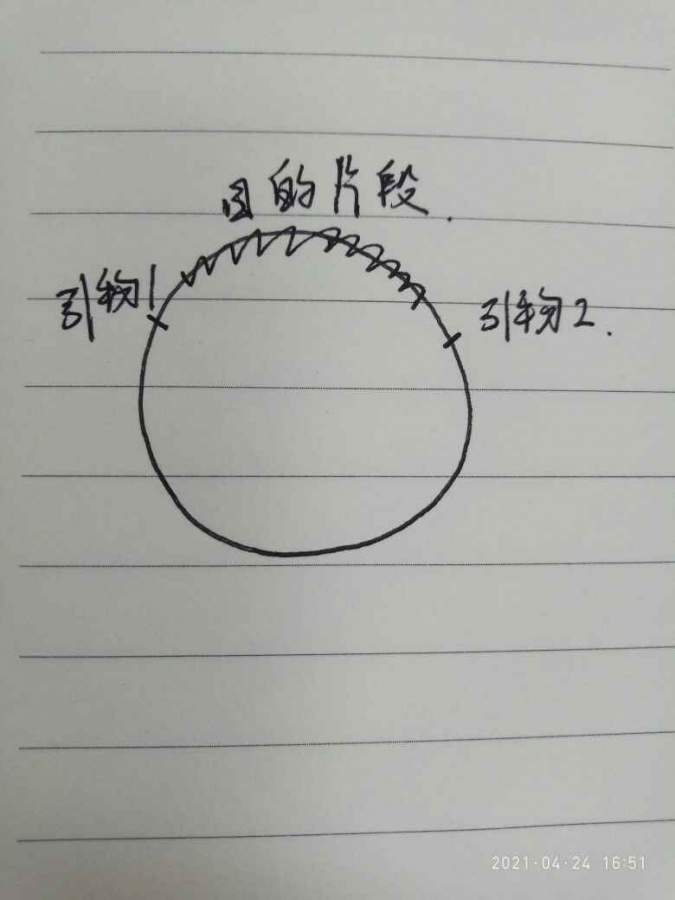 目的片段.
引物1
引物2.
2021-04-24 16:51